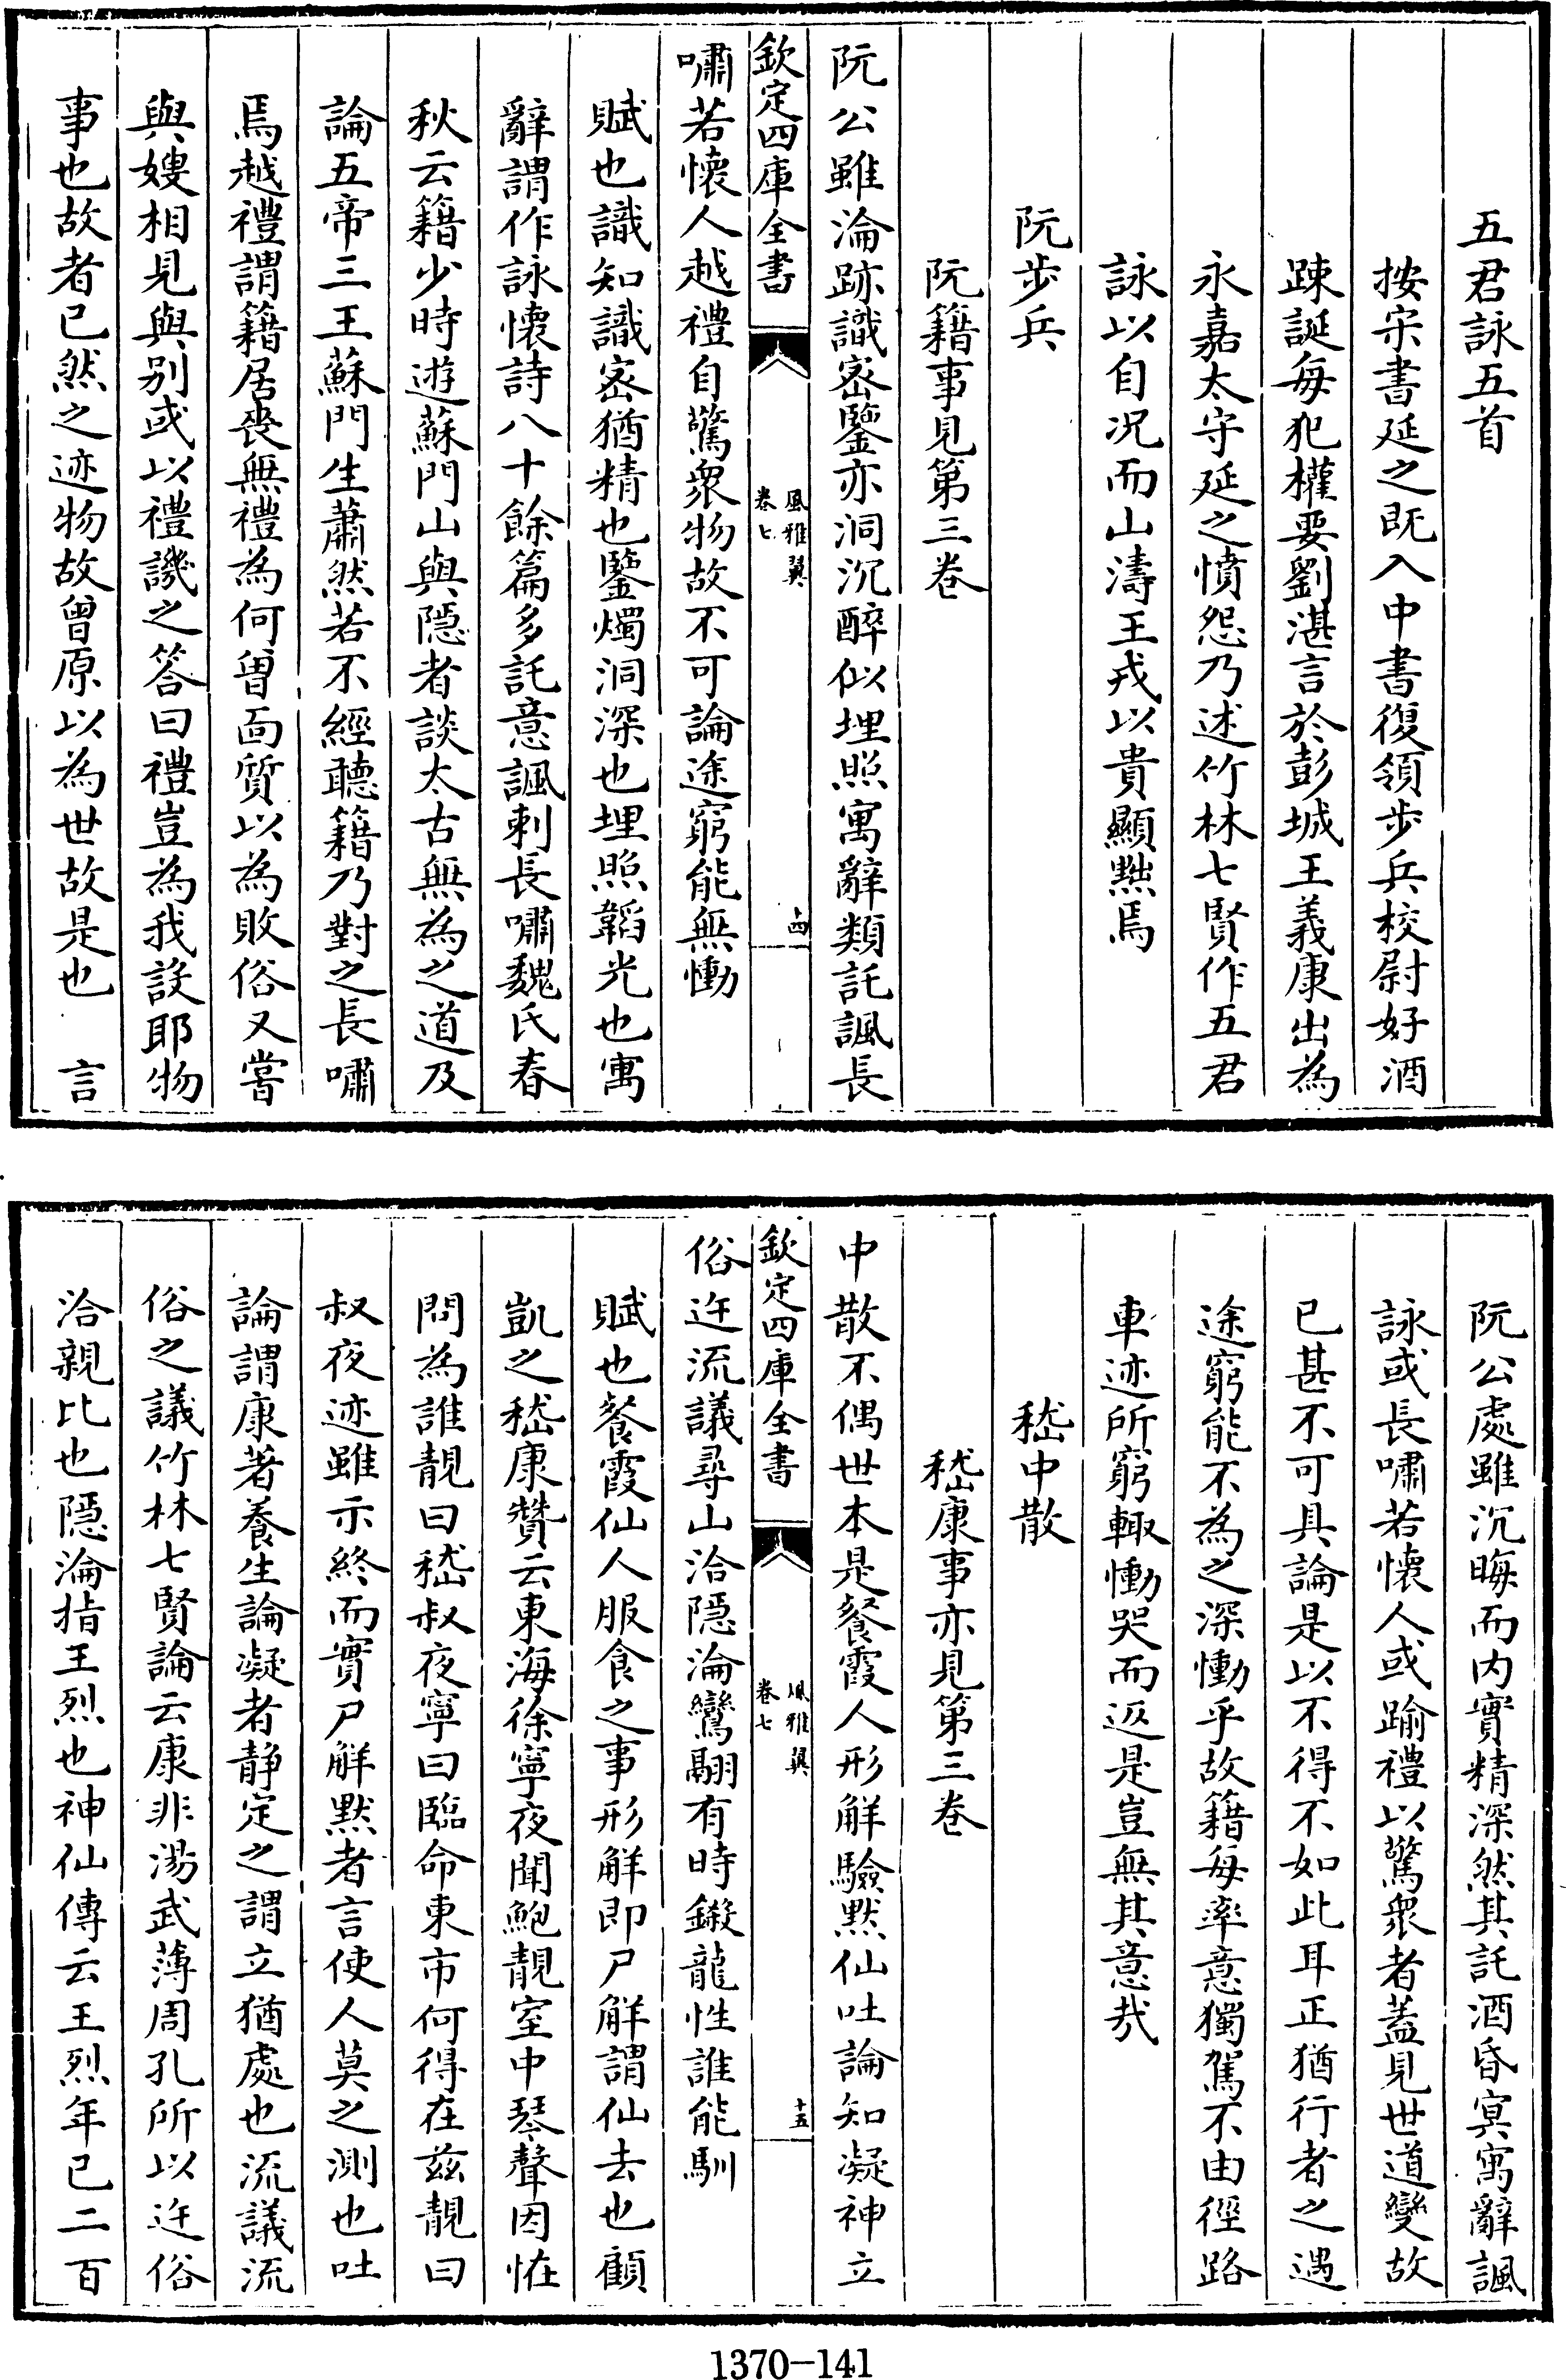 五君詠五首
按宋書延之既入中書復領步兵校尉好酒
踈誕每犯權要劉湛言於彭城王義康出為
永嘉太守延之憤怨乃述竹林七賢作五君
詠以自况而山濤王戎以貴顯黜焉
阮步兵
阮籍事見第三卷
阮公雖淪跡識宻鑒亦洞沉醉似埋照寓辭類託諷長
欽定四庫全書
風雅翼
卷七
十四
嘯若懷人越禮自驚衆物故不可論途窮能無慟
賦也識知識宻猶精也鑒燭洞深也埋照韜光也寓
辭謂作詠懷詩八十餘篇多託意諷刺長嘯魏氏春
秋云籍少時遊蘇門山與隠者談太古無為之道及
論五帝三王蘇門生蕭然若不經聽籍乃對之長嘯
焉越禮謂籍居喪無禮為何曾面質以為敗俗又嘗
與嫂相見與别或以禮譏之答曰禮豈為我設耶物
事也故者已然之迹物故曾原以為世故是也　言
阮公處雖沉晦而内實精深然其託酒昏冥寓辭諷
詠或長嘯若懷人或踰禮以驚衆者蓋見世道變故
已甚不可具論是以不得不如此耳正猶行者之遇
途窮能不為之深慟乎故籍每率意獨駕不由徑路
車迹所窮輙慟哭而返是豈無其意哉
嵇中散
嵇康事亦見第三卷
中散不偶世本是餐霞人形解驗黙仙吐論知凝神立
欽定四庫全書
風雅翼
卷七
十五
俗迕流議尋山洽隠淪鸞翮有時鎩龍性誰能馴
賦也餐霞仙人服食之事形解即尸解謂仙去也顧
凱之嵇康贊云東海徐寧夜聞鮑靚室中琴聲因恠
問為誰靚曰嵇叔夜寧曰臨命東市何得在兹靚曰
叔夜迹雖示終而實尸解黙者言使人莫之測也吐
論謂康著養生論凝者静定之謂立猶處也流議流
俗之議竹林七賢論云康非湯武薄周孔所以迕俗
洽親比也隠淪指王烈也神仙傳云王烈年已二百
1370-141